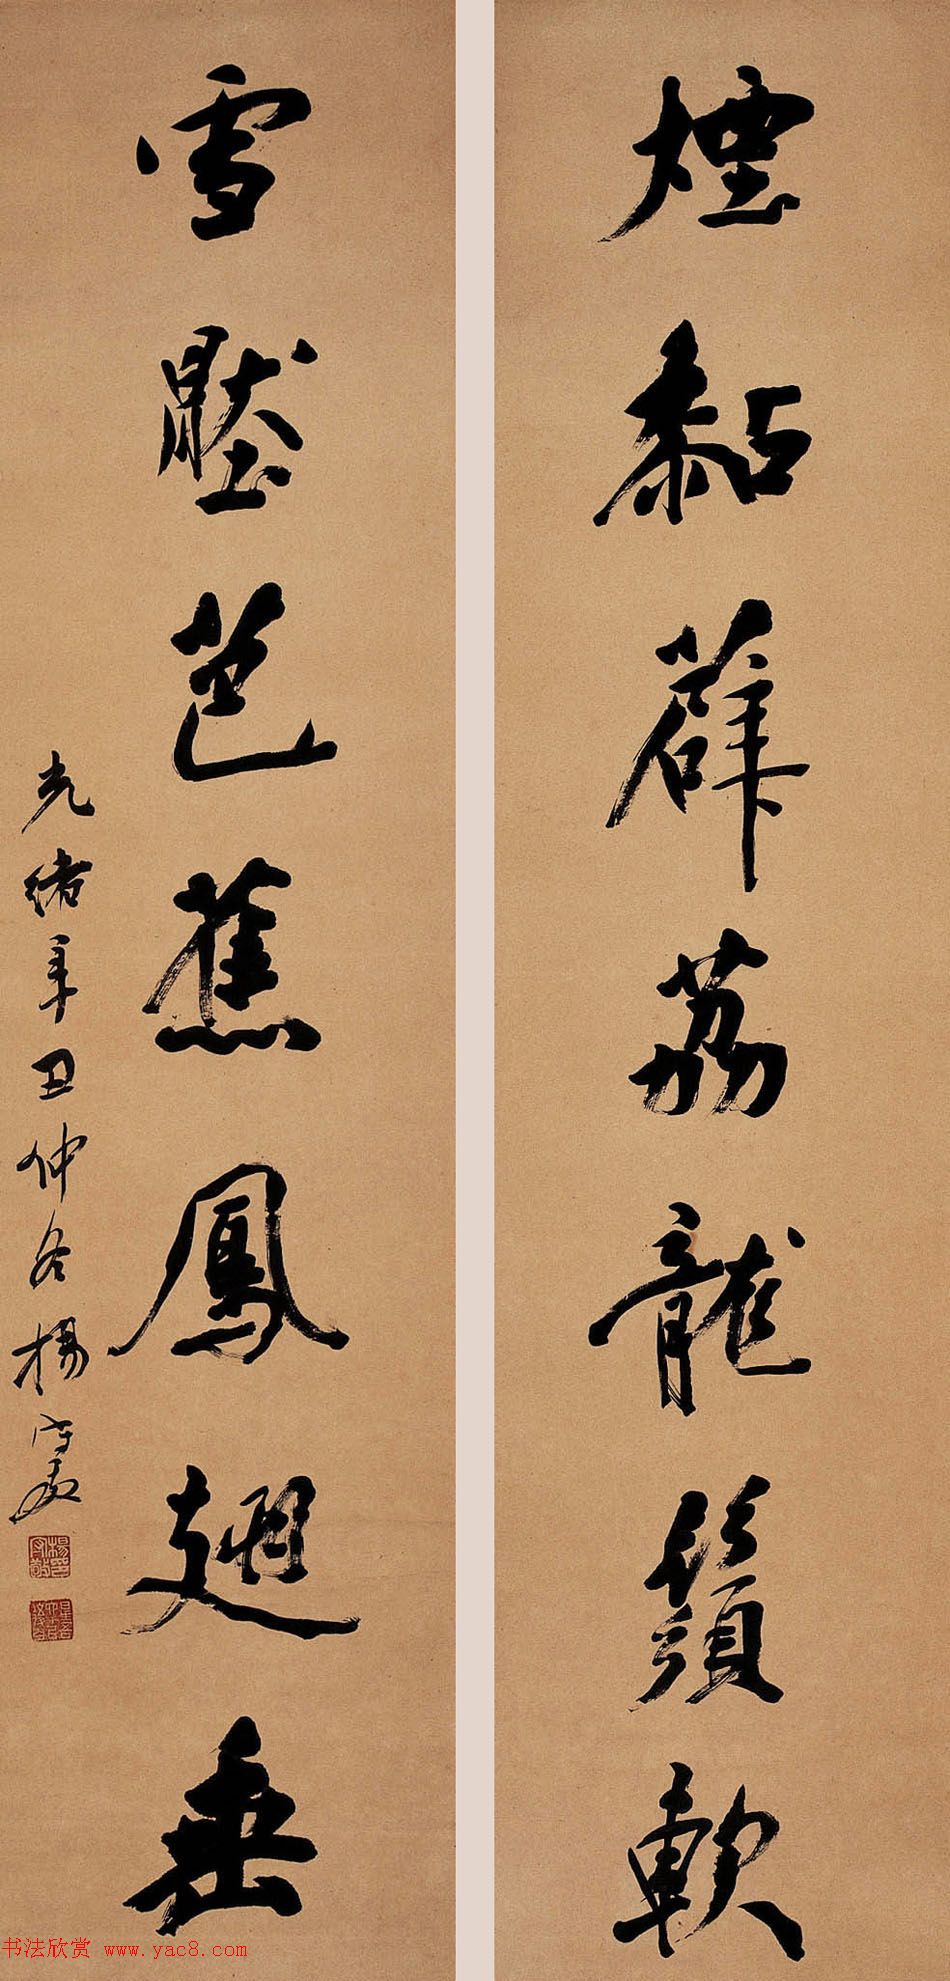 煙黏薜荔龍鬚軟
雪壓芭蕉鳳翅垂
光緒辛丑仲冬楊守敬
楊守敬印
书法欣赏 www.yac8.com